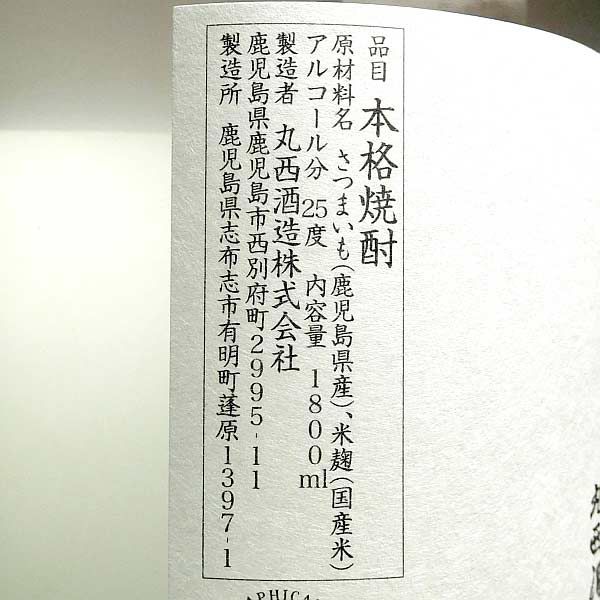 品目 本格焼酎
原材料名 さつまいも(鹿児島県産)、米麹(国産米)
アルコール分 25度 内容量 1800ml
製造者 丸西酒造株式会社
鹿児島県鹿児島市西別府町2995-11
製造所 鹿児島県志布志市有明町蓬原1397-1
PHICA